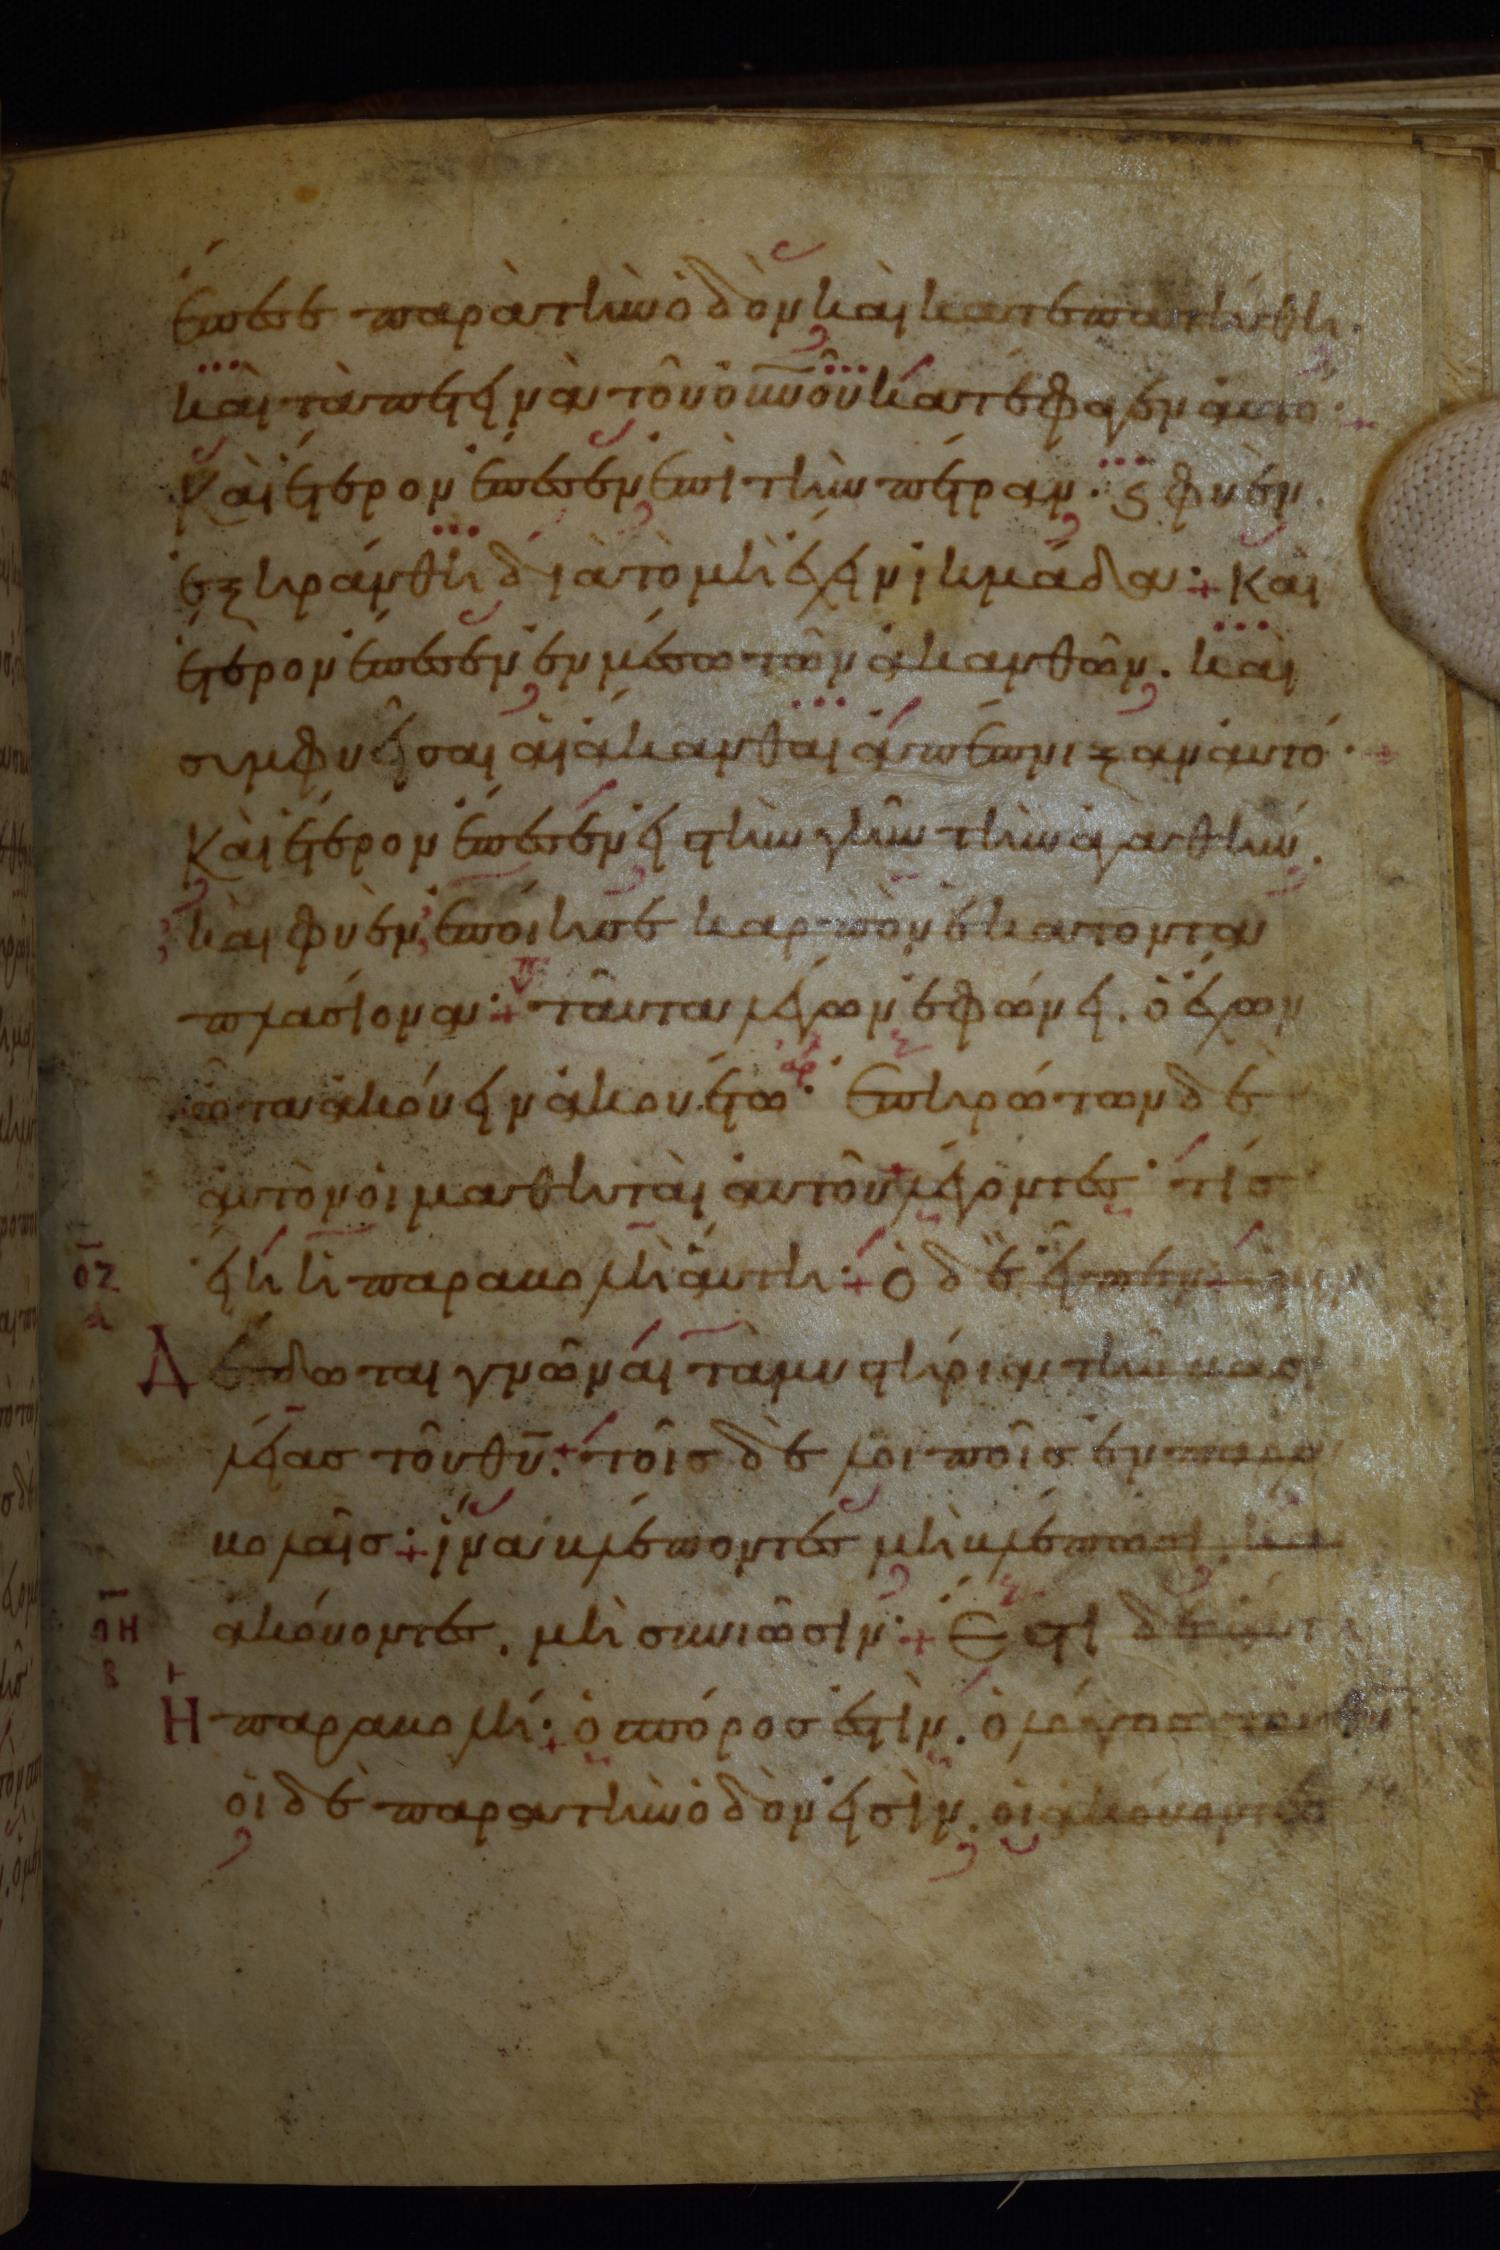 ἔπεσε παρὰ τὴν ὁδὸν καὶ κατεπατήθη.
καὶ τὰ πετεινὰ τοῦ οὐνοῦ κατέφαγεν αὐτό·
Καὶ ἕτερον ἔπεσεν ἐπὶ τὴν πέτραν· ϗ φυὲν.
ἐξηράνθη διὰ τὸ μὴ ἔχειν ἰκμάδα· Καὶ
ἕτερον ἔπεσεν ἐν μέσω τῶν ἀκανθῶν. καὶ
συμφυεῖσαι αἱ ἄκανθαι ἀπέπνιξαν αὐτό·
Καὶ ἕτερον ἔπεσεν εἰς τὴν γῆν τὴν ἀγαθήν.
καὶ φυὲν ἐποίησε καρπὸν ἑκατοντα
πλασίονα· ταῦτα λέγων ἐφώνει. ὁ ἔχων
ὦτα ἀκούειν ἀκουέτω· ἐπηρώτων δὲ
αὐτὸν οἱ μαθηταὶ αὐτοῦ λέγοντες· τίς
ΟΖ
Α
εἴη ἡ παραβολὴ αὕτη· Ὁ δὲ εἶπεν ὑμῖν
Δέδοται γνῶναι τὰ μυστήρια τῆς βασι
λείας τοῦ θῦ. τοῖς δὲ λοιποῖς ἐν παρα
βολαῖς· ἵνα βλέποντες μὴ βλέπωσι. καὶ
ΟΗ
Β
ἀκούοντες. μὴ συνιῶσιν· Ἔστι δὲ αὕτη
Ἡ παραβολή· ὁ σπόρος ἐστὶν. ὁ λόγος τοῦ θῦ
οἱ δὲ παρὰ τὴν ὁδὸν εἰσὶν. οἱ ἀκούοντες